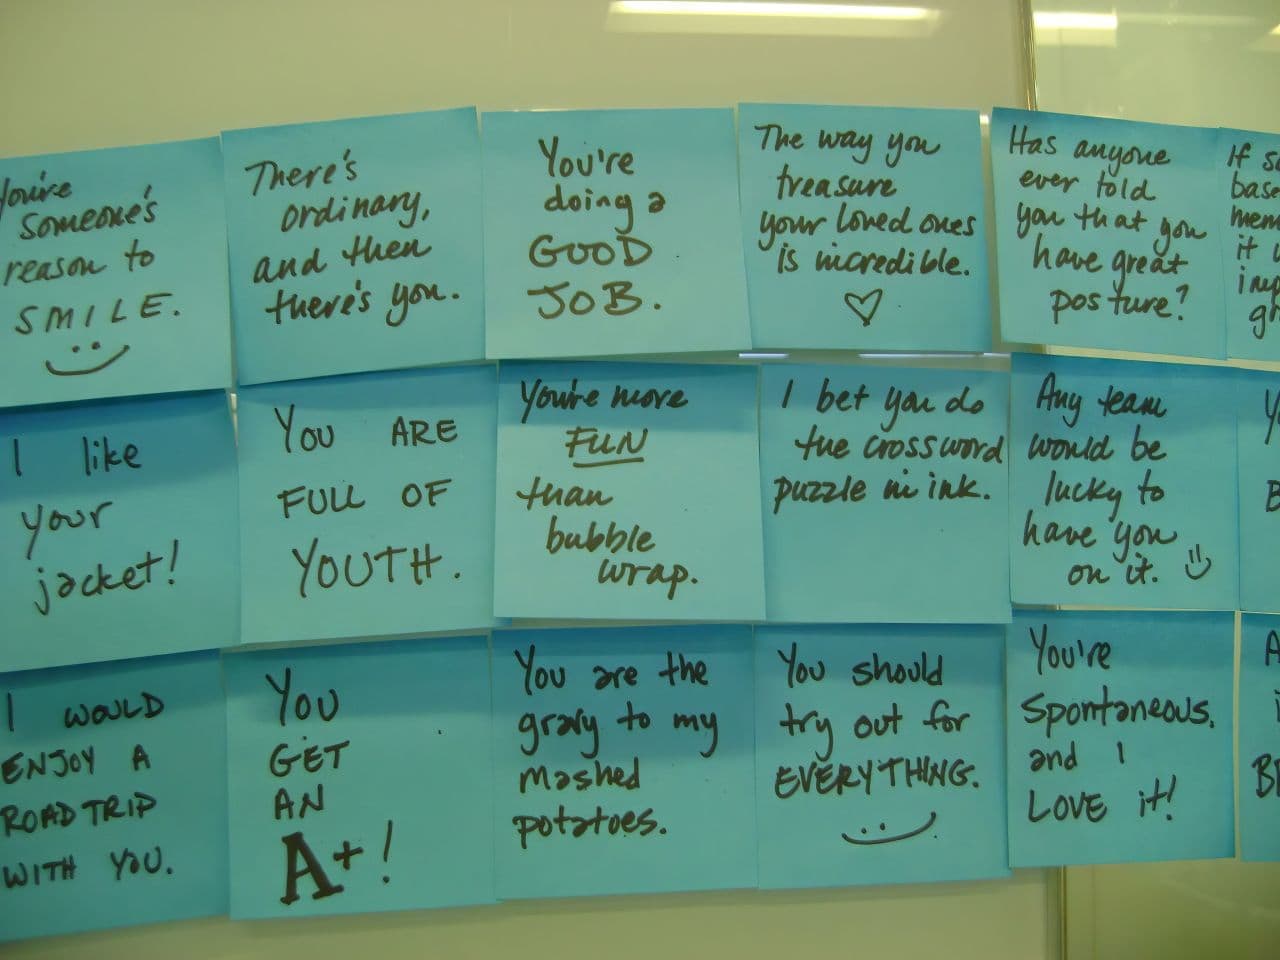 You're
someone's
reason to
SMILE.
There's
ordinary,
and then
there's you.
You're
doing a
GOOD
JOB.
The way you
treasure
your loved ones
is incredible.
Has anyone
ever told
you that you
have great
posture?
If
base
mem
it
imp
I like
your
jacket!
YOU ARE
FULL OF
YOUTH.
You're more
FUN
than
bubble
wrap.
I bet you do
the crossword
puzzle in ink.
Any team
would be
lucky to
have you
on it.
I WOULD
ENJOY A
ROAD TRIP
WITH YOU.
YOU
GET
AN
A+!
You are the
gravy to my
mashed
potatoes.
You should
try out for
EVERYTHING.
You're
Spontaneous.
and I
LOVE it!